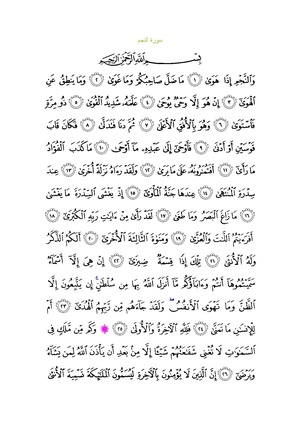 سورة النجم
بِسْمِ اللَّهِ الرَّحْمَٰنِ الرَّحِيمِ
وَالنَّجْمِ إِذَا هَوَىٰ ١ مَا ضَلَّ صَاحِبُكُمْ وَمَا غَوَىٰ ٢ وَمَا يَنطِقُ عَنِ
الْهَوَىٰ ٣ إِنْ هُوَ إِلَّا وَحْيٌ يُوحَىٰ ٤ عَلَّمَهُ شَدِيدُ الْقُوَىٰ ٥ ذُو مِرَّةٍ
فَاسْتَوَىٰ ٦ وَهُوَ بِالْأُفُقِ الْأَعْلَىٰ ٧ ثُمَّ دَنَا فَتَدَلَّىٰ ٨ فَكَانَ قَابَ
قَوْسَيْنِ أَوْ أَدْنَىٰ ٩ فَأَوْحَىٰ إِلَىٰ عَبْدِهِ مَا أَوْحَىٰ ١٠ مَا كَذَبَ الْفُؤَادُ
مَا رَأَىٰ ١١ أَفَتُمَارُونَهُ عَلَىٰ مَا يَرَىٰ ١٢ وَلَقَدْ رَآهُ نَزْلَةً أُخْرَىٰ ١٣ عِندَ
سِدْرَةِ الْمُنتَهَىٰ ١٤ عِندَهَا جَنَّةُ الْمَأْوَىٰ ١٥ إِذْ يَغْشَى السِّدْرَةَ مَا يَغْشَىٰ
١٦ مَا زَاغَ الْبَصَرُ وَمَا طَغَىٰ ١٧ لَقَدْ رَأَىٰ مِنْ آيَاتِ رَبِّهِ الْكُبْرَىٰ ١٨
أَفَرَأَيْتُمُ اللَّاتَ وَالْعُزَّىٰ ١٩ وَمَنَاةَ الثَّالِثَةَ الْأُخْرَىٰ ٢٠ أَلَكُمُ الذَّكَرُ
وَلَهُ الْأُنثَىٰ ٢١ تِلْكَ إِذًا قِسْمَةٌ ضِيزَىٰ ٢٢ إِنْ هِيَ إِلَّا أَسْمَاءٌ
سَمَّيْتُمُوهَا أَنتُمْ وَآبَاؤُكُم مَّا أَنزَلَ اللَّهُ بِهَا مِن سُلْطَانٍ ۚ إِن يَتَّبِعُونَ إِلَّا
الظَّنَّ وَمَا تَهْوَى الْأَنفُسُ ۖ وَلَقَدْ جَاءَهُم مِّن رَّبِّهِمُ الْهُدَىٰ ٢٣ أَمْ
لِلْإِنسَانِ مَا تَمَنَّىٰ ٢٤ فَلِلَّهِ الْآخِرَةُ وَالْأُولَىٰ ٢٥ ۞ وَكَم مِّن مَّلَكٍ فِي
السَّمَاوَاتِ لَا تُغْنِي شَفَاعَتُهُمْ شَيْئًا إِلَّا مِن بَعْدِ أَن يَأْذَنَ اللَّهُ لِمَن يَشَاءُ
وَيَرْضَىٰ ٢٦ إِنَّ الَّذِينَ لَا يُؤْمِنُونَ بِالْآخِرَةِ لَيُسَمُّونَ الْمَلَائِكَةَ تَسْمِيَةَ الْأُنثَىٰ